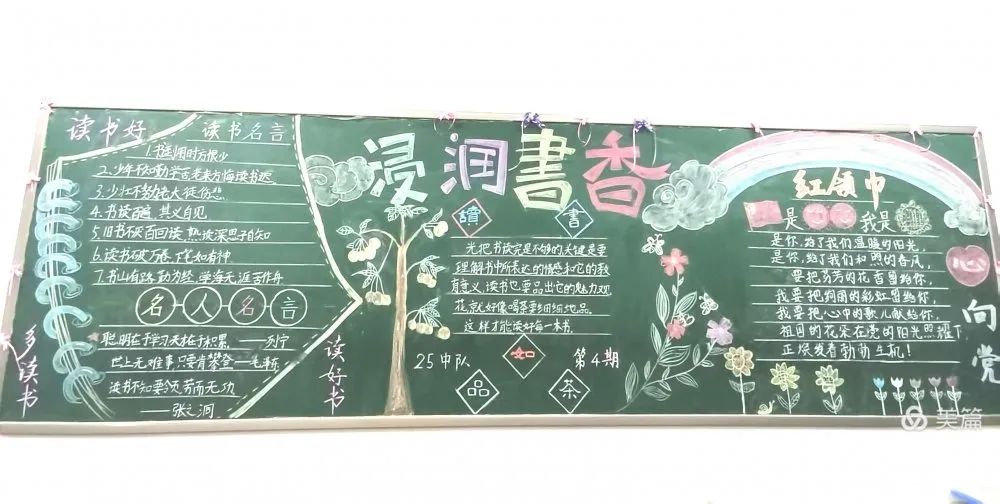 读书好
读书名言
1.书到用时方恨少
2.少年不知勤学苦老来方悔读书迟
3.少壮不努力老大徒伤悲
4.书读百遍 其义自见
5.旧书不厌百回读,熟读深思子自知
6.读书破万卷,下笔如有神
7.书山有路勤为径,学海无涯苦作舟
名人名言
聪明在于学习天才在于积累 ——列宁
世上无难事,只要肯攀登—毛泽东
读书不知要领,劳而无功
——张之洞
多读书
读好书
浸润書香
讀書
光把书读完是不够的关键是要
理解书中所表达的情感和它的教
育意义,读书也要品出它的魅力观
花,就好像喝茶要细细地品。
这样才能读好每一本书。
25中队
如
第4期
品茶
红领巾
是心心我是
是你,给了我们温暖的阳光,
是你,给了我们和煦的春风,
要把芬芳的花香留给你,
我要把绚丽的彩虹留给你,
我要把心中的歌儿献给你,
祖国的花朵在党的阳光照耀下
正焕发着勃勃生机!
心向党
美篇